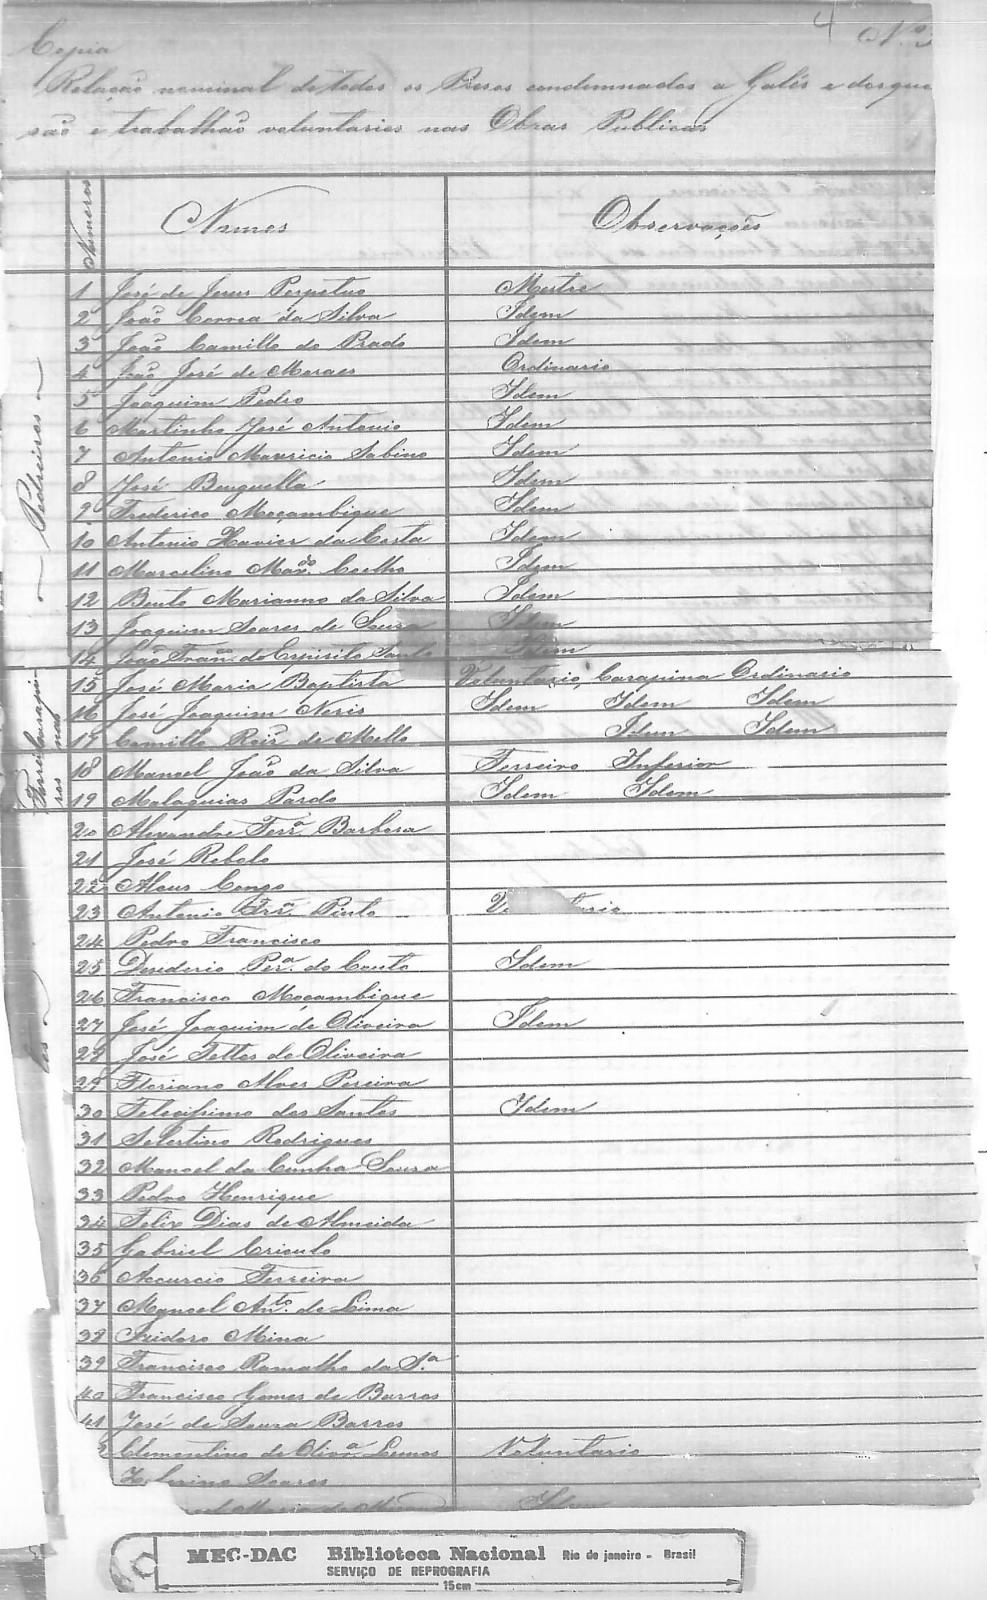 4 Nº 3
Copia
Relação nominal de todos os Presos condemnados a Galés e dos que
são e trabalhão voluntarios nas Obras Publicas
Numeros Nomes Observações
Pedreiros
1 José de Jesus Perpetuo Mestre
2 João Correa da Silva Idem
3 João Camillo do Prado Idem
4 João José de Moraes Ordinario
5 Joaquim Pedro Idem
6 Martinho José Antonio Idem
7 Antonio Mauricio Sabino Idem
8 José Benguella Idem
9 Frederico Moçambique Idem
10 Antonio Xavier da Costa Idem
11 Marcelino Maxdo. Coelho Idem
12 Bento Marianno da Silva Idem
13 Joaquim Soares de Souza Idem
14 João Franco. do Espirito Santo Idem
15 José Maria Baptista Voluntario, Carapina Ordinario
16 José Joaquim Neris Idem Idem Idem
17 Camillo Roiz de Mello Idem Idem
18 Manoel João da Silva Ferreiro Inferior
19 Malaquias Pardo Idem Idem
20 Alexandre Ferra. Barbosa
21 José Rebolo
22 Congo
23 Antonio Pinto
24 Pedro Francisco
25 Desiderio Pera. do Couto Idem
26 Francisco Moçambique
27 José Joaquim de Oliveira Idem
28 José Telles de Oliveira
29 Floriano Alves Pereira
30 Telesphoro dos Santos Idem
31 Rodrigues
32 Manoel da Cunha Souza
33 Pedro Henrique
34 Felix Dias de Almeida
35 Gabriel Crioulo
36 Accurcio Ferreira
37 Manoel Anto. de Lima
38 Izidoro Mina
39 Francisco Ramalho da Sa.
40 Francisco Gomes de Barros
41 José de Souza Barros
2 Clementino de Olivra. Lemos Voluntario
Soares
Maria de Idem
MEC-DAC Biblioteca Nacional Rio de janeiro - Brasil
SERVIÇO DE REPROGRAFIA
15cm